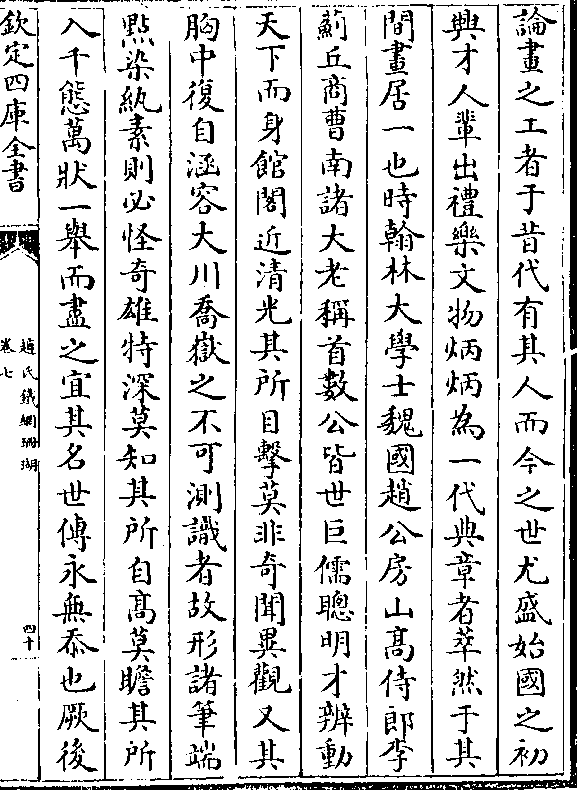 論畫之工者于昔代有其人而今之世尤盛始國之初
興才人輩出禮樂文物炳炳為一代典章者萃然于其
間畫居一也時翰林大學士魏國趙公房山髙侍郎李
薊丘商曹南諸大老稱首數公皆世巨儒聰明才辨動
天下而身館閣近清光其所目擊莫非竒聞異觀又其
胸中復自涵容大川喬嶽之不可測識者故形諸筆端
㸃染紈素則必怪竒雄特深莫知其所自髙莫瞻其所
入千態萬狀一舉而盡之宜其名世傳永無忝也厥後
欽定四庫全書
趙氏鐵網珊瑚
卷七
四十